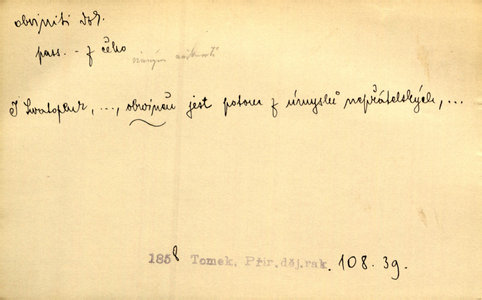 obviniti dok.
pass. - z čeho
I Svatopluk, ..., obviněn jest potom z úmyslů nepřátelských, ...
1858 Tomek. Přír.děj.rak. 108. 39.